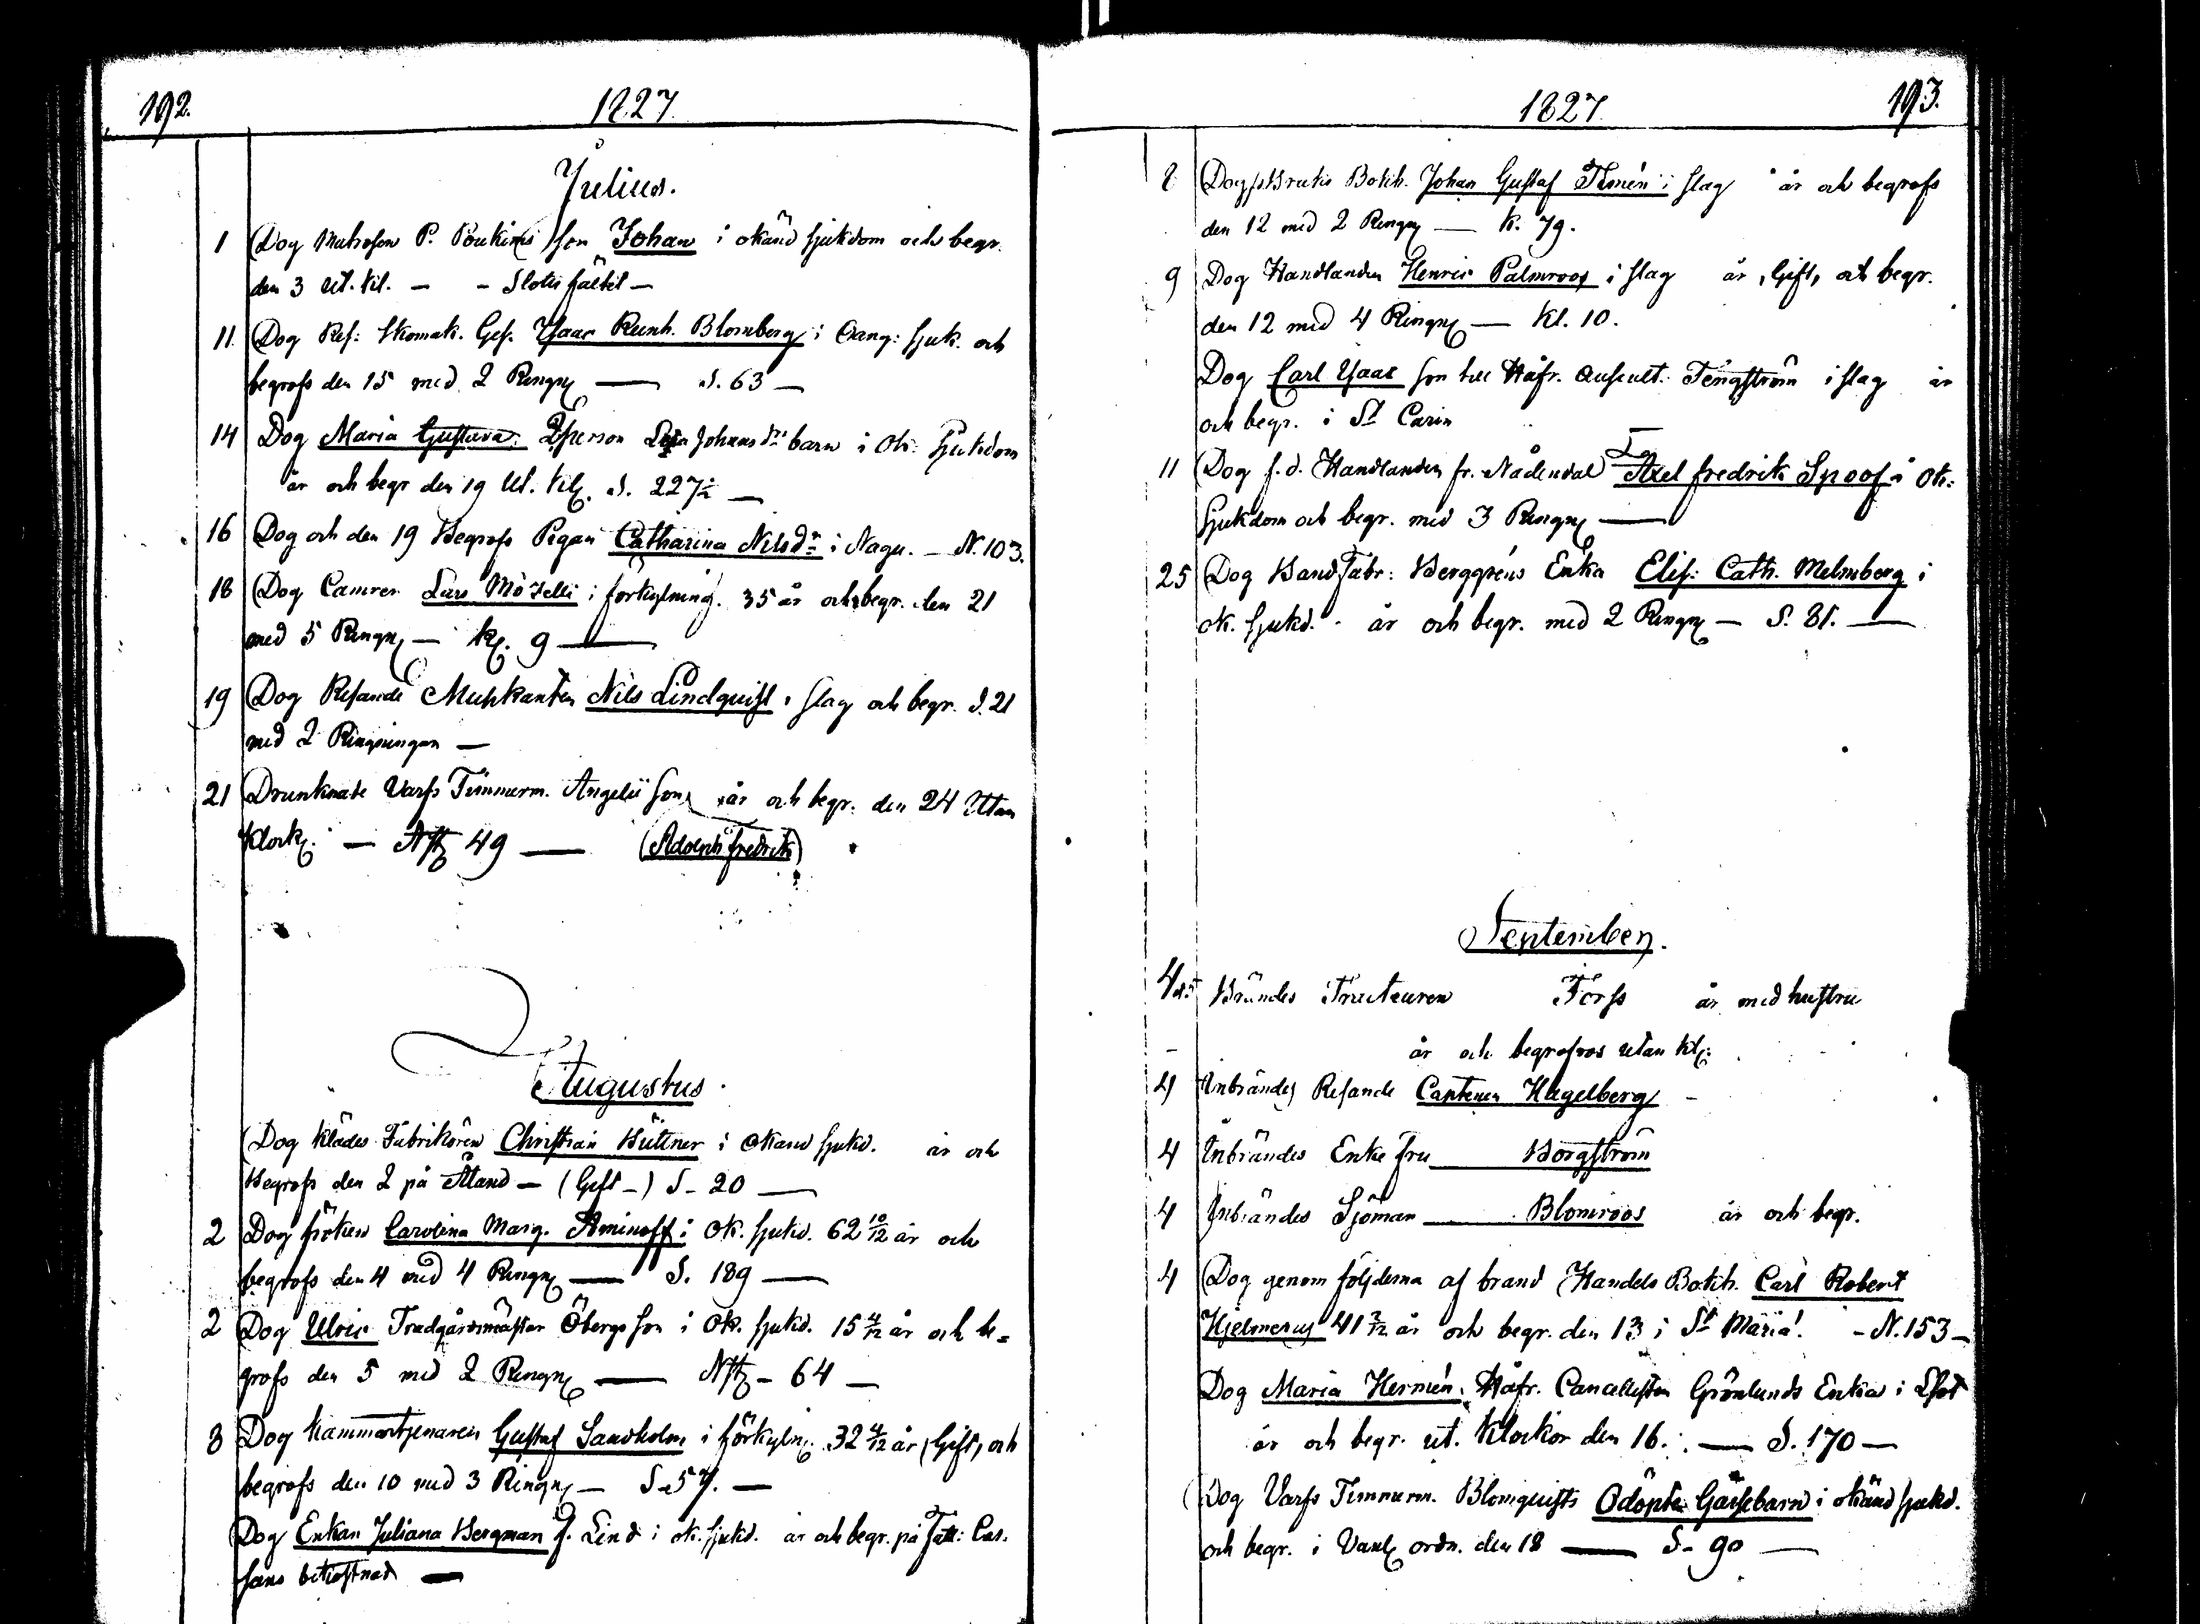 192.
1827.
Julius.
1 Dog Matrosen P. son Johan i okänd sjukdom och begr.
den 3 ut. kl. — – Slotts —
11. Dog Ref: Skomak. Ges. Isaac Reinh. Blomberg i Gang: sjuk. och
begrofs den 15 med 2 Ringng — S. 63 —
14 Dog Maria Gustava. Qsperson Johansdr barn i ok: Sjukdom
år och begr den 19 ut. klg. S. 227½ —
16 Dog och den 19 Begrofs Pigan Catharina Nilsdr i Nagu. — N. 103.
18 Dog Camrer. Lars i förkylning. 35 år och begr. den 21
med 5 Ringng — kq. 9 —
19 Dog Resande Musikanten Nils Lindquist i slag och begr. d. 21
med 2 Ringningar —
21 Drunknade Varfs Timmerm. Angelii son, år och begr. den 24 Utan
klock. — Nstg 49 — (Adolph Fredrik)
Augustus.
Dog Klädes Fabrikören Christian Büttner i okänd sjukd. år och
Begrofs den 2 på Åland — (Gift –) S – 20 —
2 Dog fröken Carolina Marg. Aminoff i ok. sjukd. 62 10/12 år och
begrofs den 4 med 4 Ringng — S. 189 —
2 Dog Ulric Trädgårdsmästar Öbergs son i ok. sjukd. 15 4/12 år och be=
grofs den 5 med 2 Ringng — Nstg – 64 —
8 Dog Kammartjenaren Gustaf Sandholm i förkyln. 32 4/12 år, Gift, och
begrofs den 10 med 3 Ringng — S – 57. —
Dog Enkan Juliana Bergman f. Lind i ok. sjukd. år och begr. på Fatt: Cas.
sans bekostnad —
1827.
193.
8 Dog Botkh. Johan Gustaf Thmén i slag år och begrofs
den 12 med 2 Ringng — k. 79.
9 Dog Handlanden Henric Palmroos i slag år, Gift, och begr.
den 12 med 4 Ringng — Kl. 10.
Dog Carl Isaac son till Håfr. Auscult. Tengström i slag år
och begr. i St Carin
11 Dog f. d. Handlanden fr. Nådendal Axel Fredrik Spoof i ok:
Sjukdom och begr. med 3 Ringng —
25 Dog Bandfabr: Berggréns Enka Elis: Cath. Melmberg i
ok. sjukd. år och begr. med 2 Ringng — S. 81. —
September.
4 Brändes Tracteuren Forss år med hustru
år och begrofvos utan klg.
4 Inbrändes Resande Captenen Hagelberg –
4 Inbrändes Enke fru Borgström
4 Inbrändes Sjöman Blomroos år och begr.
4 Dog genom följderna af brand Handels Bokh. Carl Robert
Hjelmerus 41 3/12 år och begr. den 13 i St Maria. – N. 153 –
Dog Maria Hermén, Håfr. Cancellisten Grönlunds Enka i
år och begr. ut. klockor den 16. — S. 170 —
Dog Varfs Timmerm. Blomquists Odöpte Gossebarn i okänd sjukd.
och begr. i Vanlg ordn. den 18 — S – 90 —